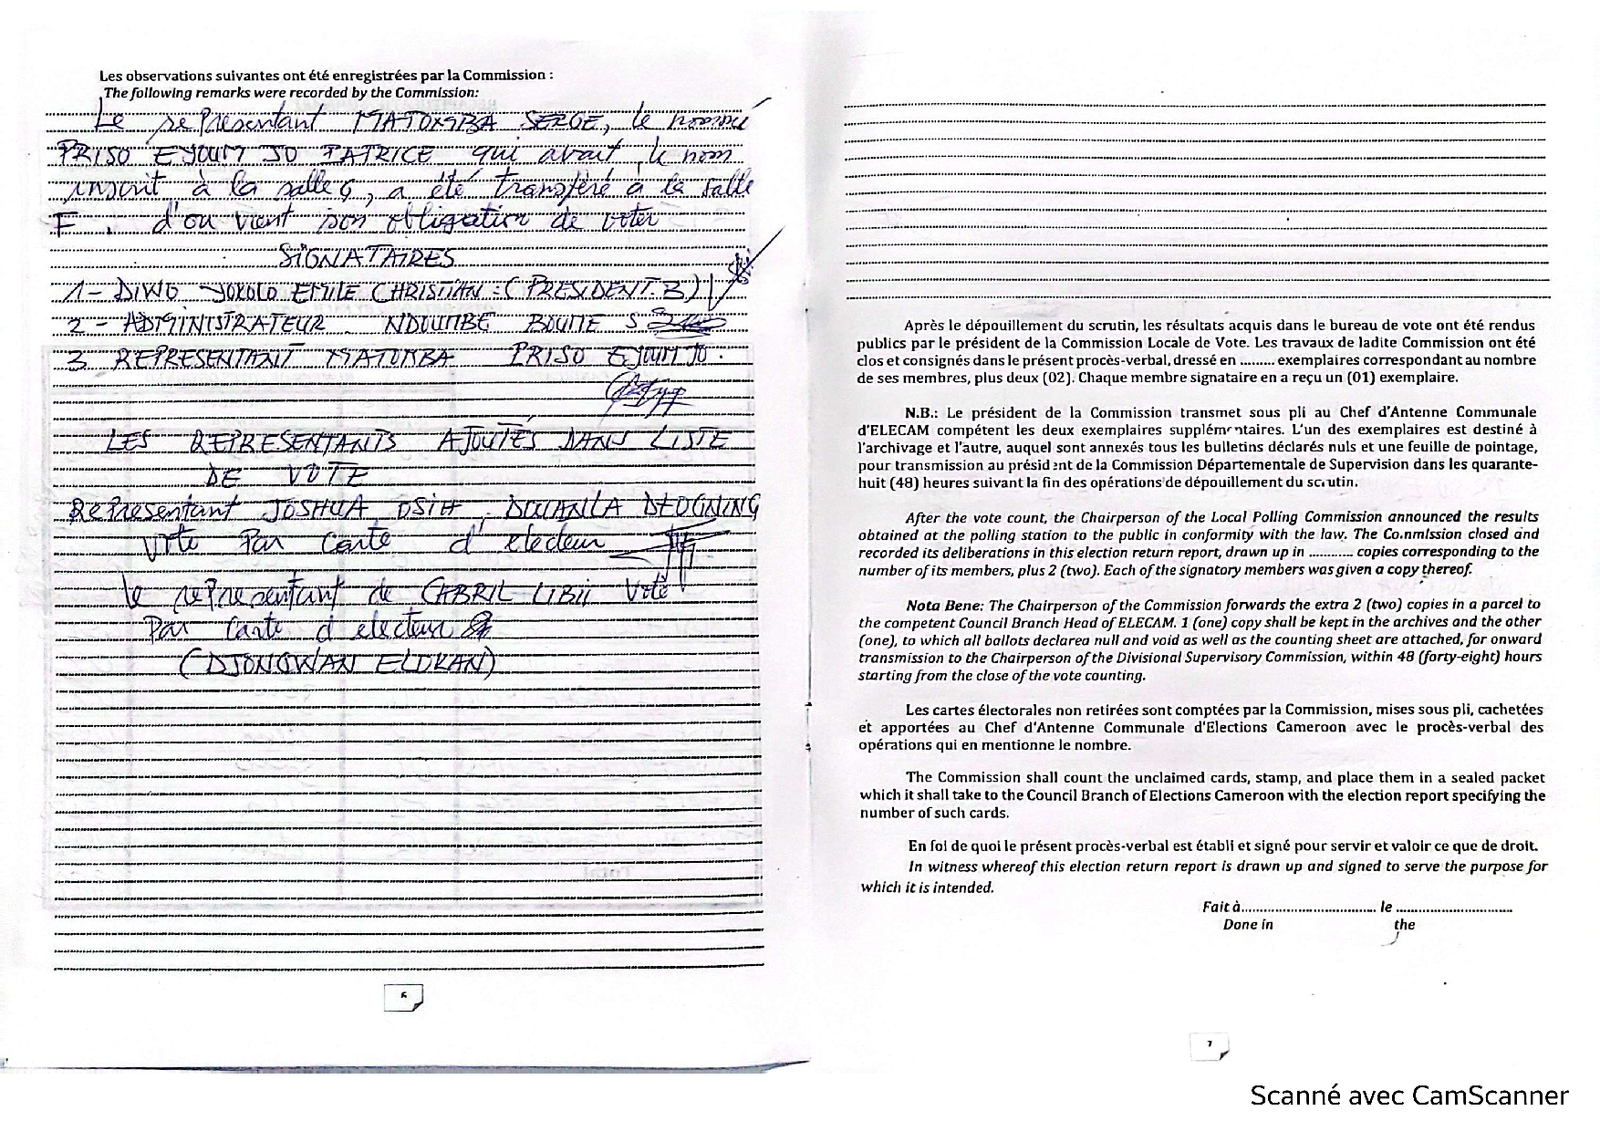 Les observations suivantes ont été enregistrées par la Commission :
The following remarks were recorded by the Commission:
Le représentant MATOMBA SERGE, le nommé
PRISO EJOUM JO PATRICE qui avait le nom
inscrit à la salle G, a été transféré à la salle
F. d'ou vient son obligation de voter
SIGNATAIRES
1- DIWO YOKOLO EMILE CHRISTIAN : (PRESIDENT.B)
2 - ADMINISTRATEUR NDOUMBE BOUME S
3 REPRESENTANT MATOMBA PRISO EJOUM JO.
LES REPRESENTANTS AJOUTÉS DANS LISTE
DE VOTE
Représentant JOSHUA OSIH, DOUANLA DEOGNING
Vote Par Carte d'electeur
le représentant de CABRIL LIBII Vote
Par Carte d electeur
(DJONGWAN ELDRAN)
6
Après le dépouillement du scrutin, les résultats acquis dans le bureau de vote ont été rendus
publics par le président de la Commission Locale de Vote. Les travaux de ladite Commission ont été
clos et consignés dans le présent procès-verbal, dressé en ......... exemplaires correspondant au nombre
de ses membres, plus deux (02). Chaque membre signataire en a reçu un (01) exemplaire.
N.B.: Le président de la Commission transmet sous pli au Chef d'Antenne Communale
d'ELECAM compétent les deux exemplaires supplémentaires. L'un des exemplaires est destiné à
l'archivage et l'autre, auquel sont annexés tous les bulletins déclarés nuls et une feuille de pointage,
pour transmission au président de la Commission Départementale de Supervision dans les quarante-
huit (48) heures suivant la fin des opérations de dépouillement du scrutin.
After the vote count, the Chairperson of the Local Polling Commission announced the results
obtained at the polling station to the public in conformity with the law. The Commission closed and
recorded its deliberations in this election return report, drawn up in ............ copies corresponding to the
number of its members, plus 2 (two). Each of the signatory members was given a copy thereof.
Nota Bene: The Chairperson of the Commission forwards the extra 2 (two) copies in a parcel to
the competent Council Branch Head of ELECAM. 1 (one) copy shall be kept in the archives and the other
(one), to which all ballots declarea null and void as well as the counting sheet are attached, for onward
transmission to the Chairperson of the Divisional Supervisory Commission, within 48 (forty-eight) hours
starting from the close of the vote counting.
Les cartes électorales non retirées sont comptées par la Commission, mises sous pli, cachetées
et apportées au Chef d'Antenne Communale d'Elections Cameroon avec le procès-verbal des
opérations qui en mentionne le nombre.
The Commission shall count the unclaimed cards, stamp, and place them in a sealed packet
which it shall take to the Council Branch of Elections Cameroon with the election report specifying the
number of such cards.
En foi de quoi le présent procès-verbal est établi et signé pour servir et valoir ce que de droit.
In witness whereof this election return report is drawn up and signed to serve the purpose for
which it is intended.
Fait à.................................. le ..............................
Done in the
7
Scanné avec CamScanner